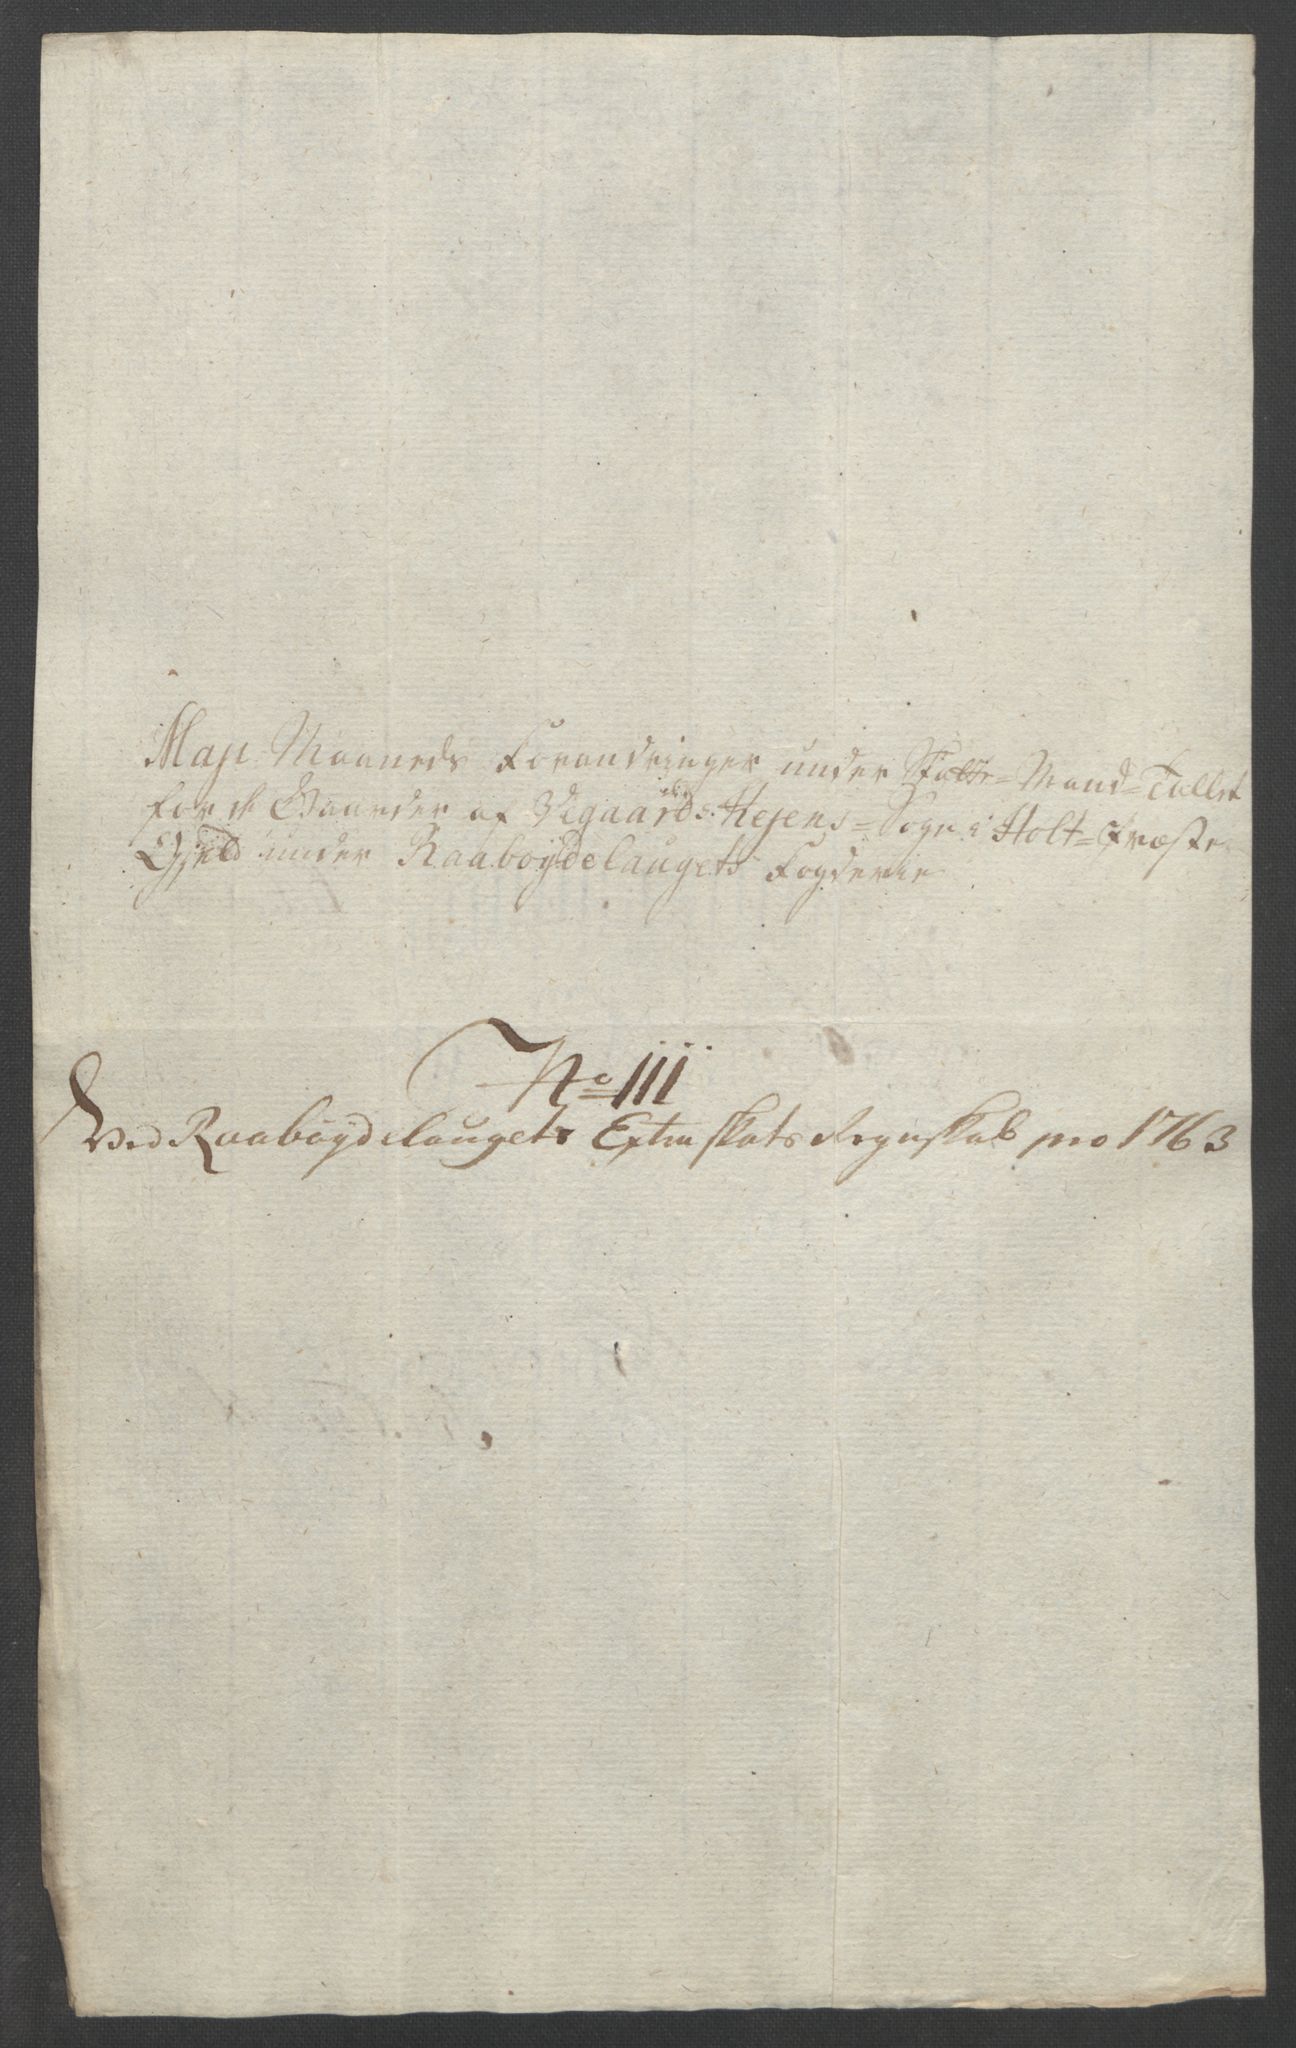 Maji Maaneds Forandringer under Skatte=Mand=Tallet
for de Gaarder af Vegaardsheyens=Sogn i Holt=Præste
Gield under Raaboydelaugets Fogderie
No III
Ved Raaboydelaugets Extra skats Regnskab pro 1763